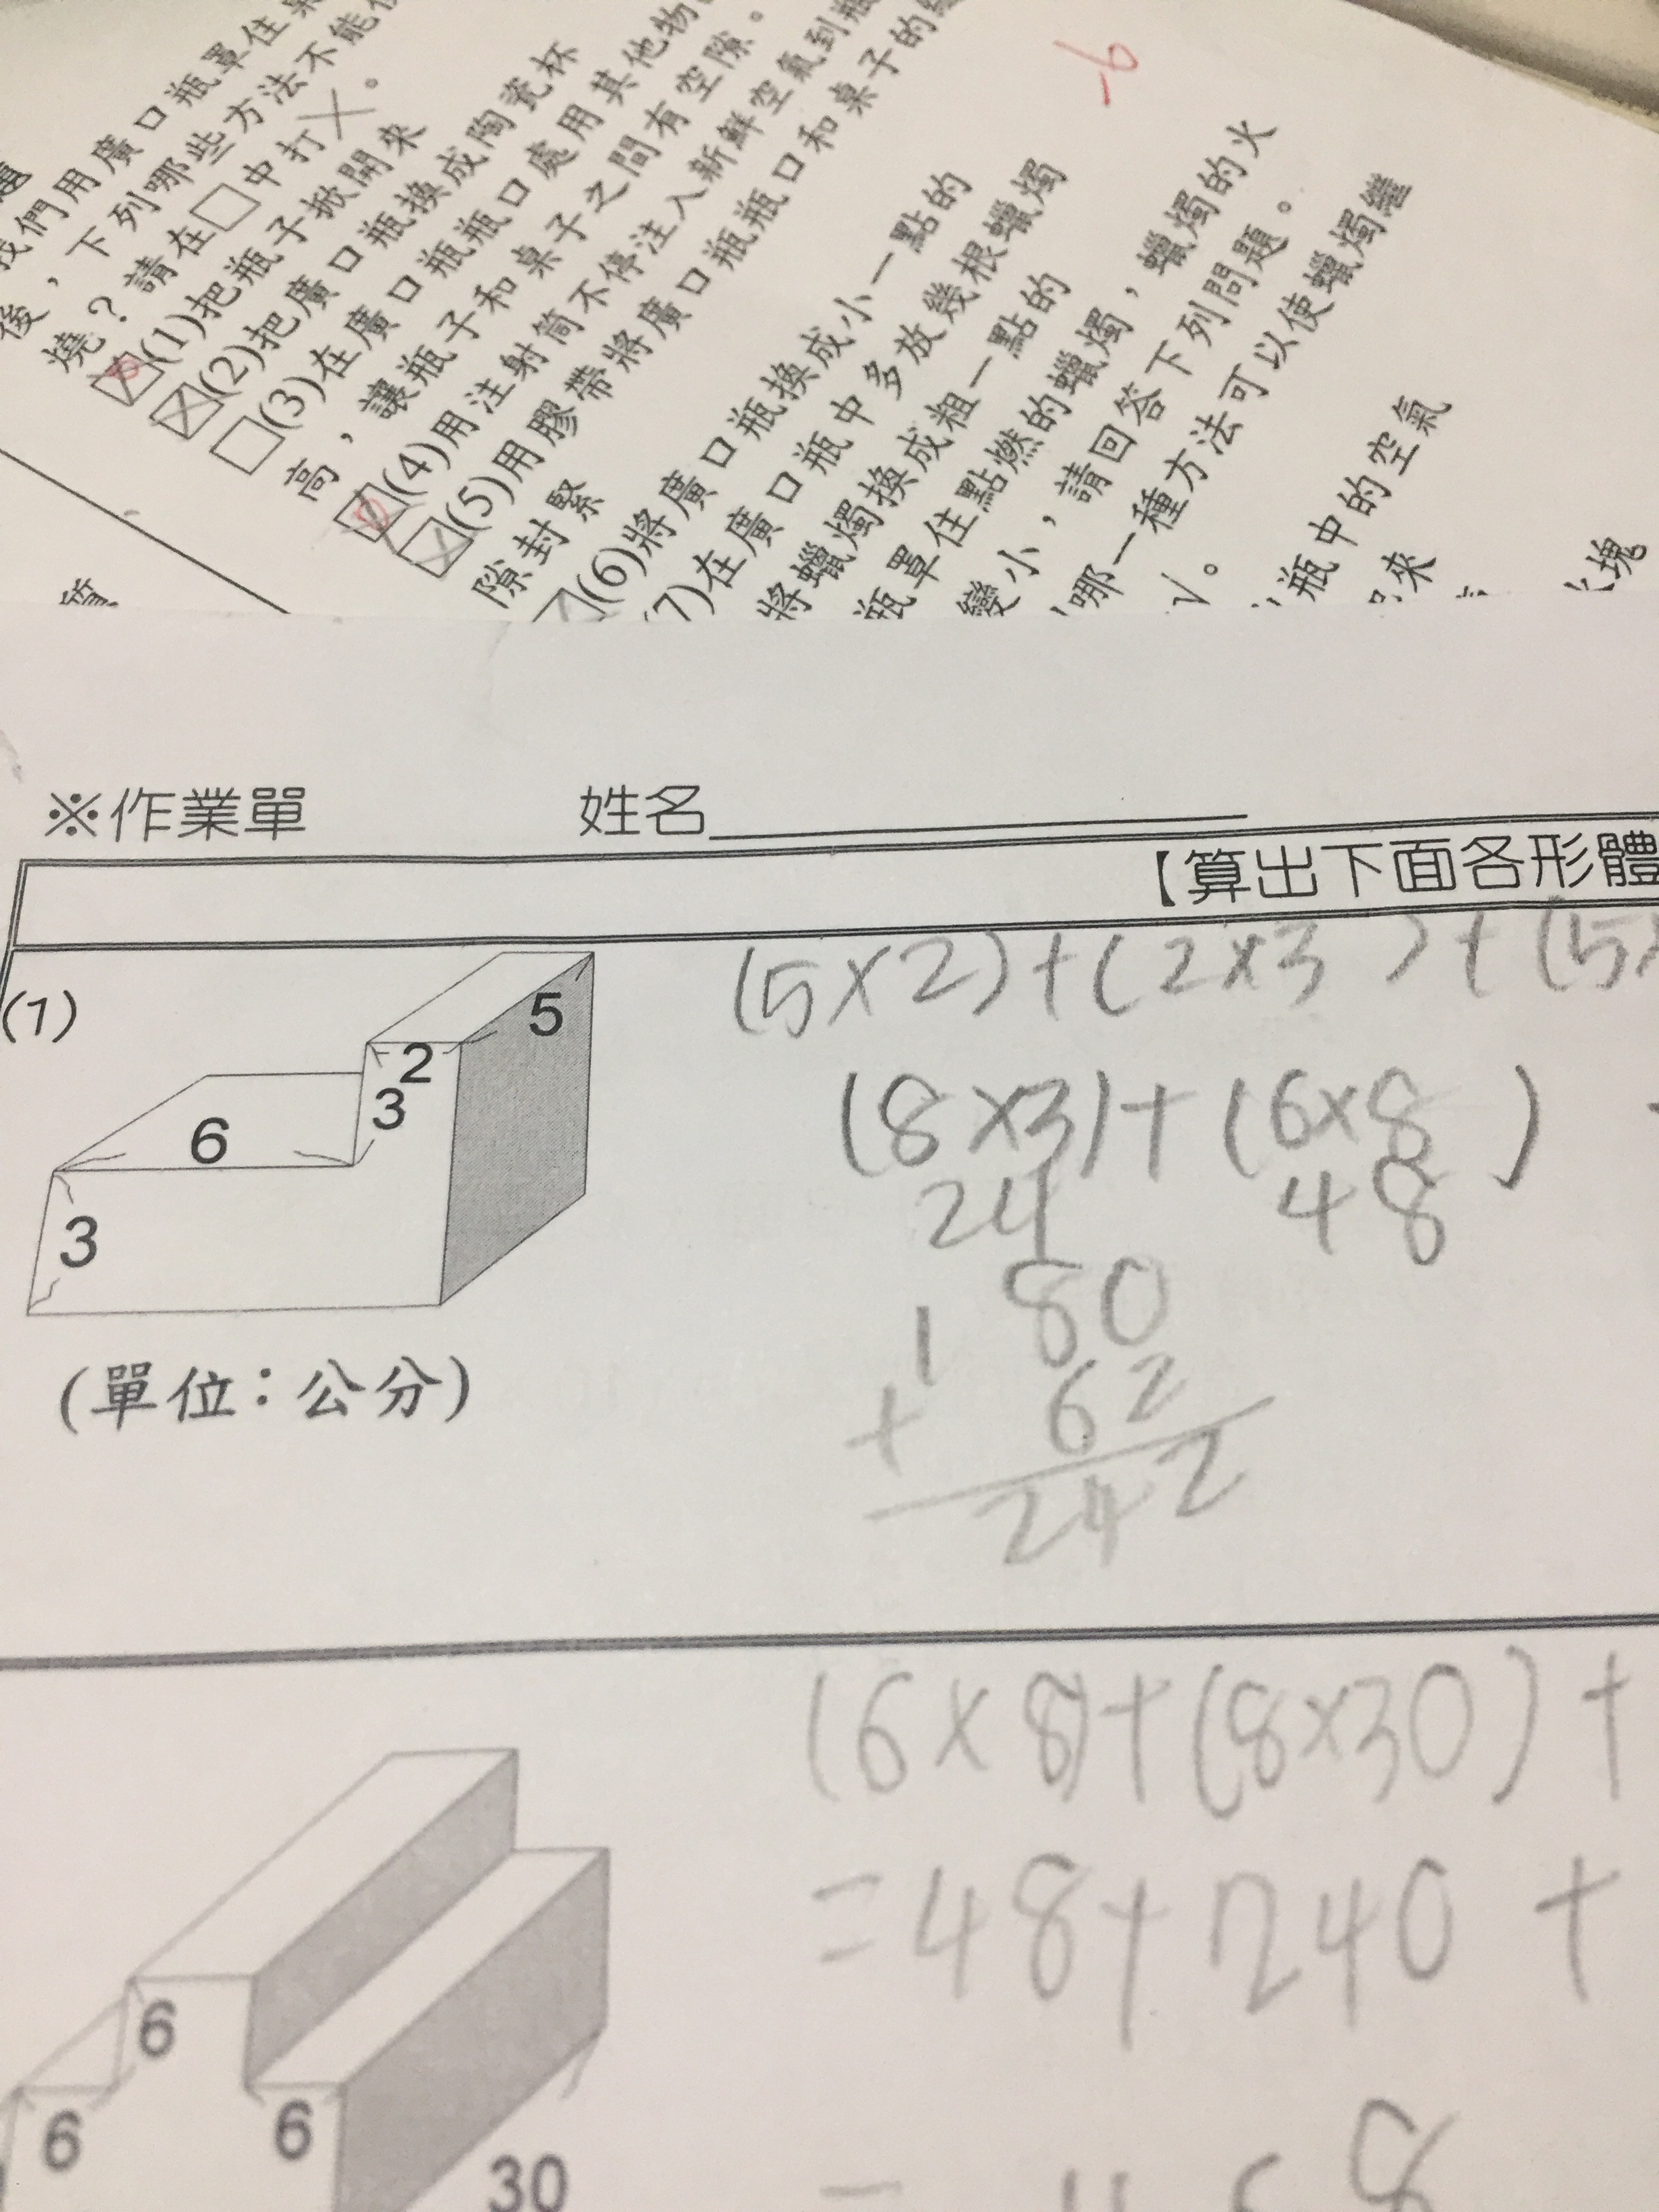 -6
我們用廣口瓶罩住
後，下列哪些方法不能
燒？請在□中打╳。
(1)把瓶子掀開來
(2)把廣口瓶換成陶瓷杯
(3)在廣口瓶瓶口處用其他物
高，讓瓶子和桌子之間有空隙。
(4)用注射筒不停注入新鮮空氣到瓶
(5)用膠帶將廣口瓶瓶口和桌子的
隙封緊
(6)將廣口瓶換成小一點的
(7)在廣口瓶中多放幾根蠟燭
將蠟燭換成粗一點的
瓶罩住點燃的蠟燭，蠟燭的火
變小，請回答下列問題。
哪一種方法可以使蠟燭繼
√。
瓶中的空氣
來
塊
※作業單 姓名
【算出下面各形體
(1)
5
2
3
6
3
(單位：公分)
(5×2)+(2×3)+(5
(8×3)+(6×8)
24 48
180
+ 62
242
6
6
6
30
(6×8)+(8×30)+
=48+240+
=